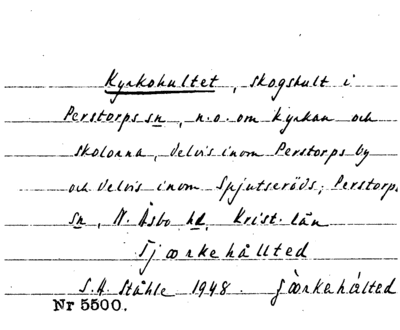 Kyrkohultet, skogshult i
Perstorps sn, n.o. om kyrkan och
skolorna, delvis inom Perstorps by
och delvis inom Spjutseröds; Perstorps
sn, N. Åsbo hd, Krist. län
S.A. Ståhle 1948.
Nr 5500.